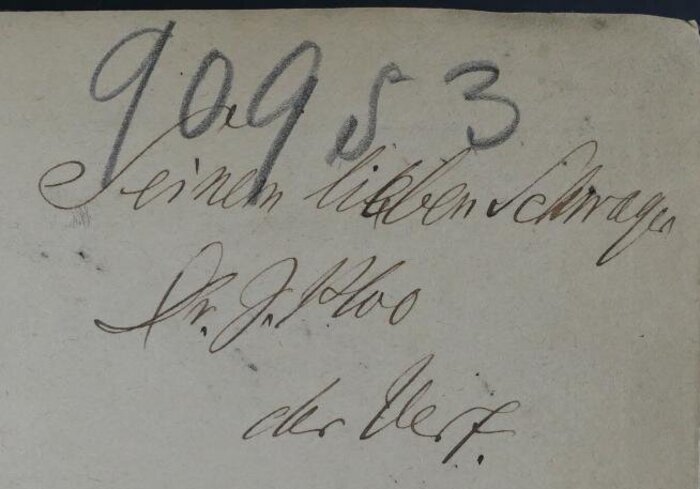 90953
Seinem lieben Schwager
Dr. J. Kloo
der Verf.